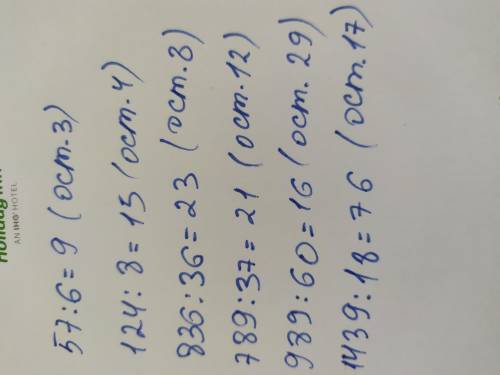 57:6=9 (ост.3)
124:8=15 (ост.4)
836:36=23 (ост.8)
789:37=21 (ост.12)
989:60=16 (ост.29)
1439:18=76 (ост.17)
Holiday Inn
AN IHG HOTEL